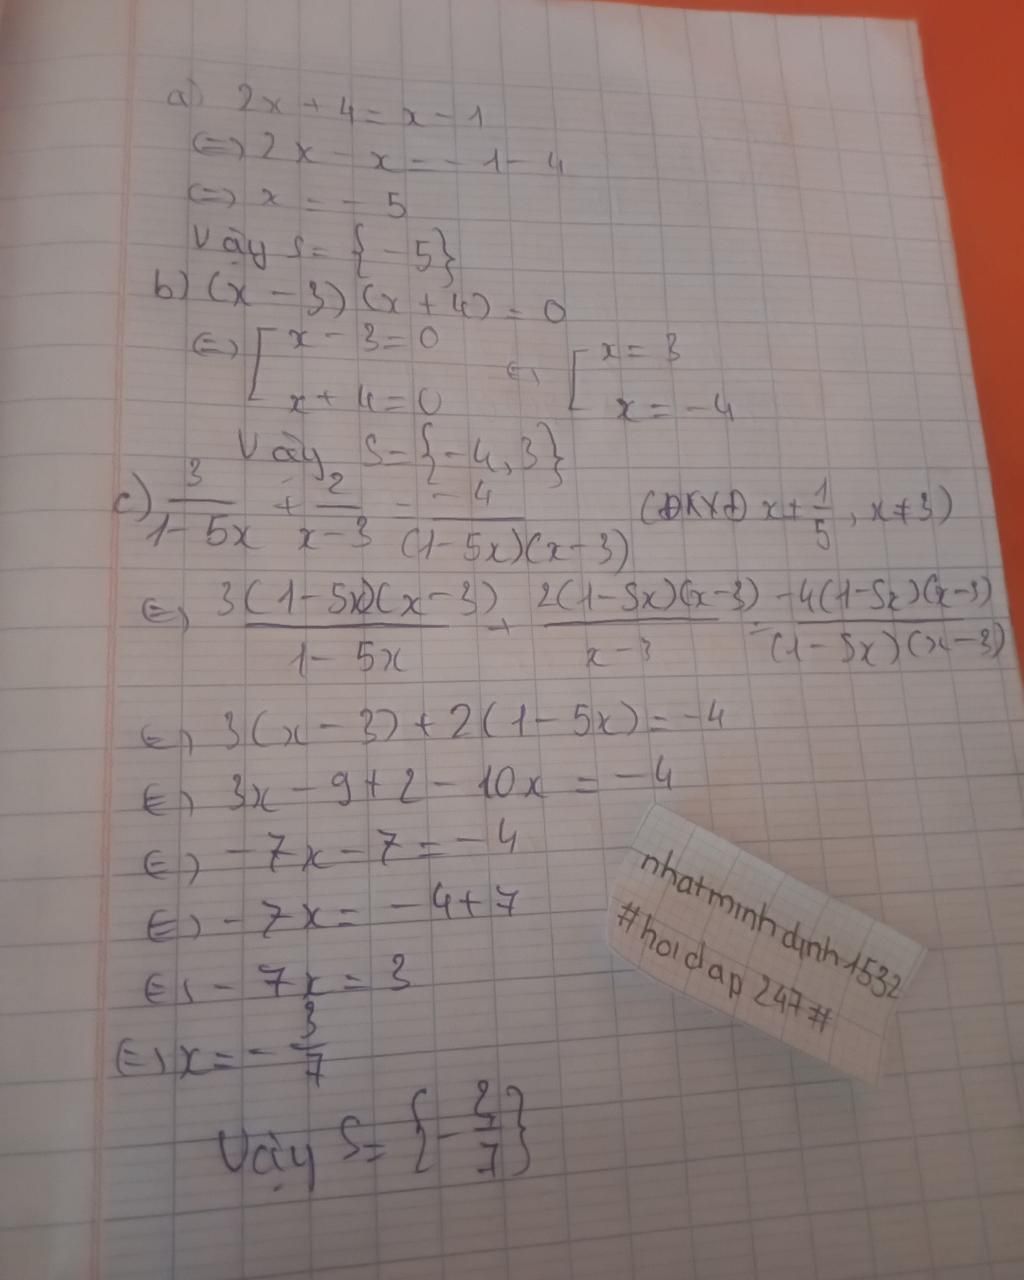 a) 2x + 4 = x - 1
<=> 2x - x = - 1 - 4
<=> x = - 5
Vậy S = { - 5}
b) (x - 3) (x + 4) = 0
<=> [ x - 3 = 0 <=> [ x = 3
x + 4 = 0 x = -4
Vậy S = {-4, 3}
c) 3/(1 - 5x) + 2/(x - 3) = -4/((1 - 5x)(x - 3)) (ĐKXĐ x ≠ 1/5, x ≠ 3)
<=> 3(1 - 5x)(x - 3)/(1 - 5x) + 2(1 - 5x)(x - 3)/(x - 3) = -4(1 - 5x)(x - 3)/((1 - 5x)(x - 3))
<=> 3(x - 3) + 2(1 - 5x) = -4
<=> 3x - 9 + 2 - 10x = -4
<=> -7x - 7 = -4
<=> -7x = -4 + 7
<=> -7x = 3
<=> x = -3/7
Vậy S = {-3/7}
nhatminhdinh1532
#hoidap247#